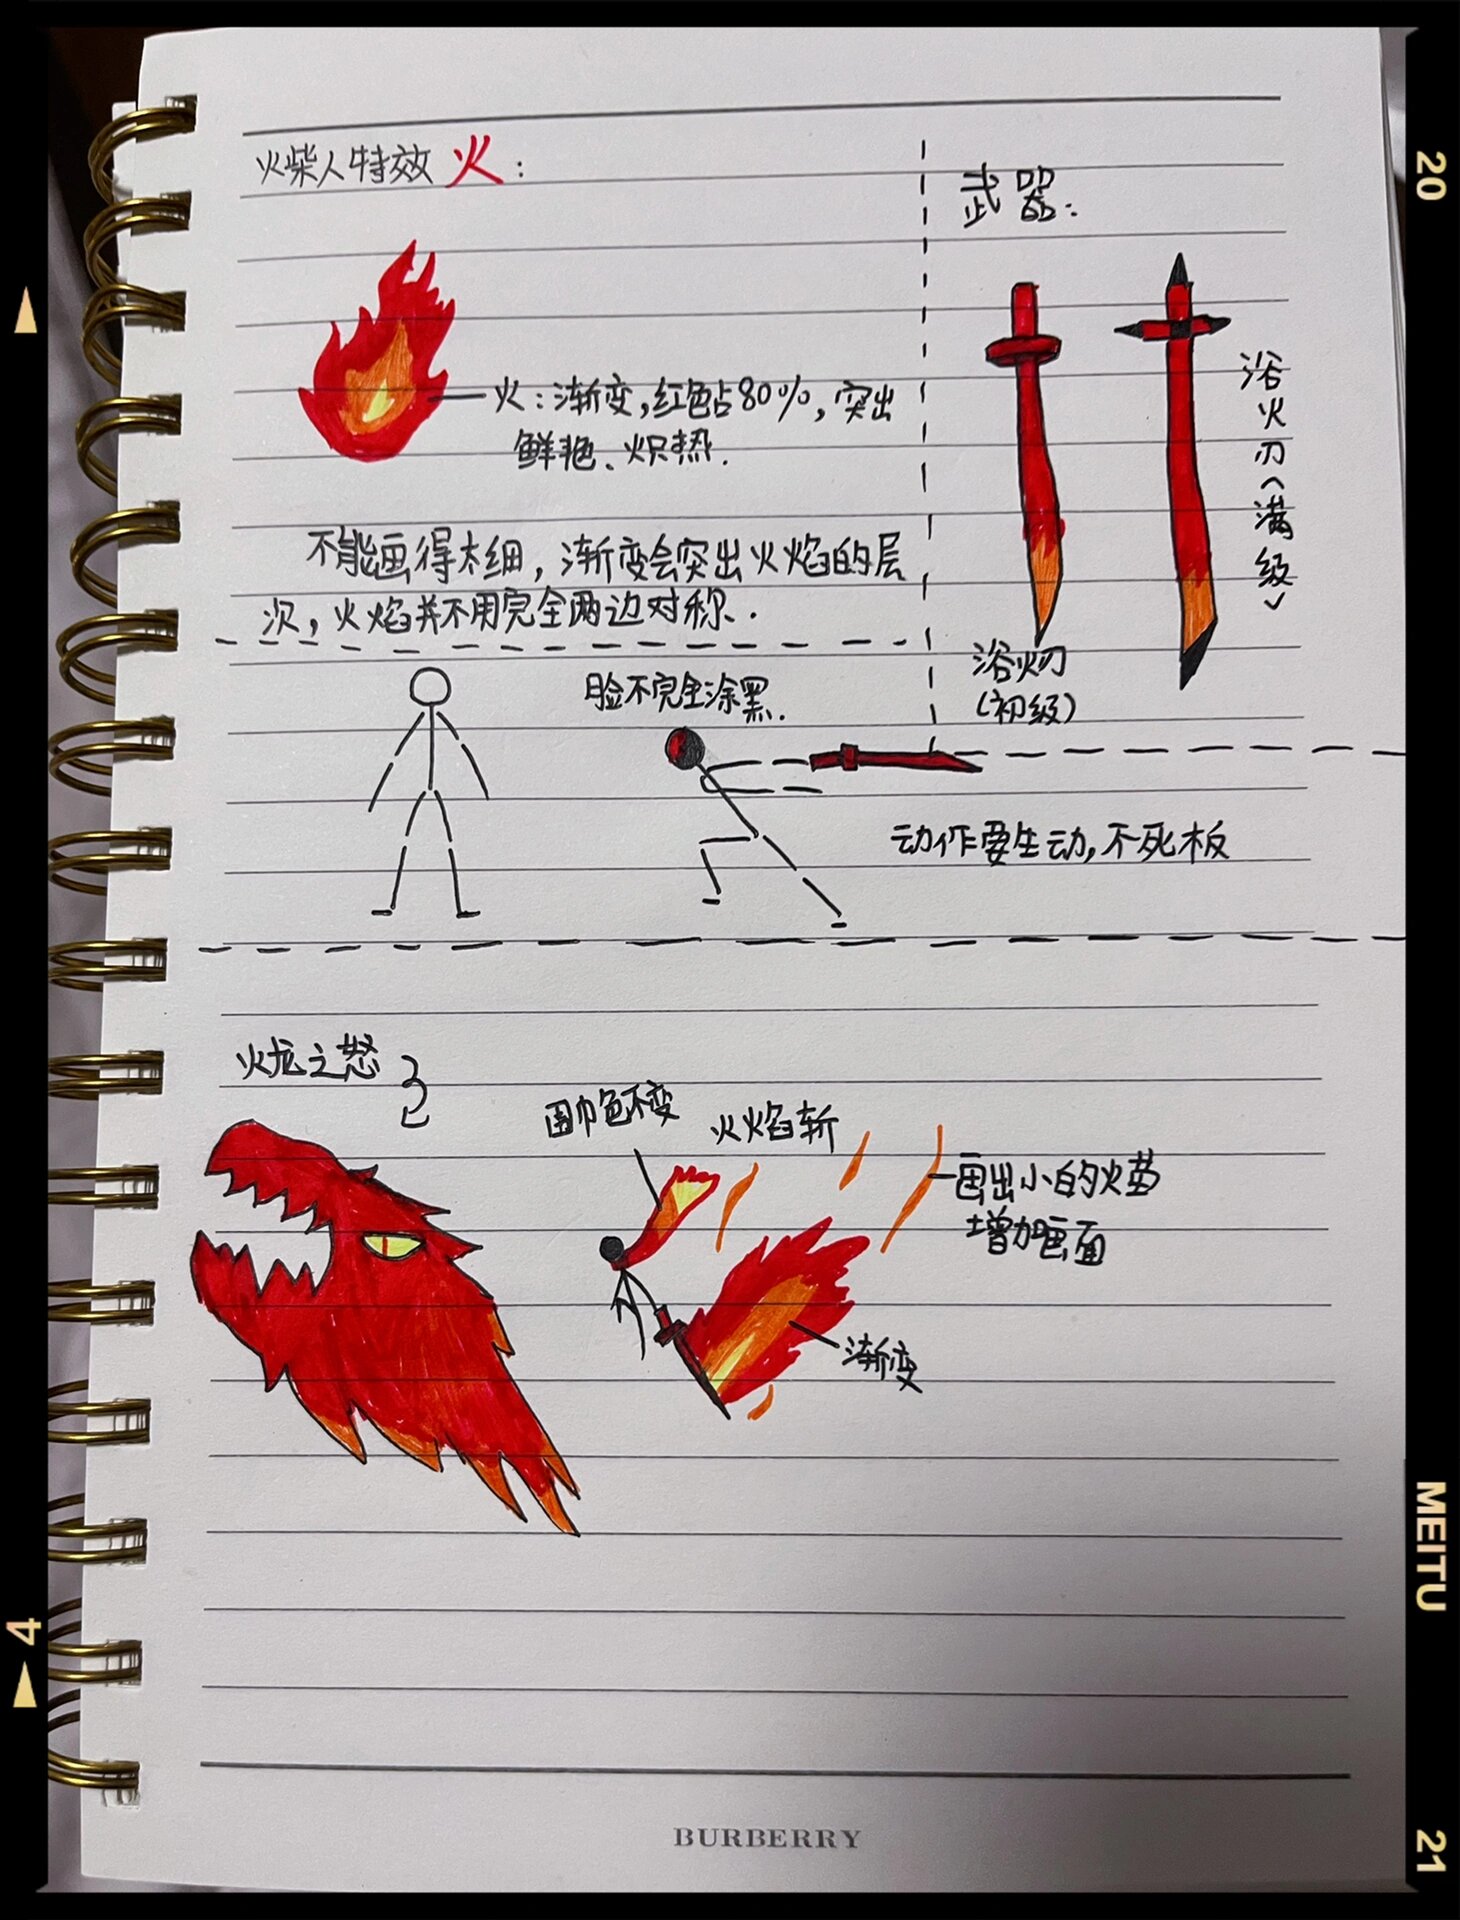 火柴人特效 火：
火：渐变，红色占80%，突出
鲜艳、炽热.
不能画得太细，渐变会突出火焰的层
次，火焰并不用完全两边对称.
武器：
浴火刃（满级）
浴火刃
（初级）
脸不完全涂黑.
动作要生动，不死板
火龙之怒
围巾色不变
火焰斩
画出小的火苗
增加画面
渐变
BURBERRY
20
MEITU
21
4